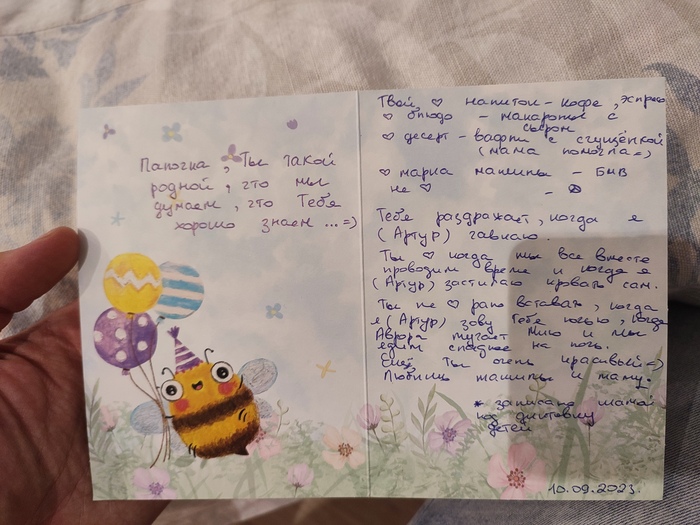 Папочка, Ты такой
родной, что мы
думаем, что Тебя
хорошо знаем ...=)
Твой ♡ напиток - кофе, эспрессо
♡ блюдо - макароны с
сыром
♡ десерт - вафли с сгущёнкой
(мама помогла=)
♡ марка машины - БМВ
не ♡ -
Тебя раздражает, когда я
(Артур) гавкаю.
Ты ♡ когда мы все вместе
проводим время и когда я
(Артур) застилаю кровать сам.
Ты не ♡ рано вставать, когда
я (Артур) зову Тебя ночью, когда
Аврора мучает и мы
едим сладкое на ночь.
Ещё, Ты очень красивый=)
Любишь машины и маму.
* записано мамой
под диктовку
детей
10.09.2023.